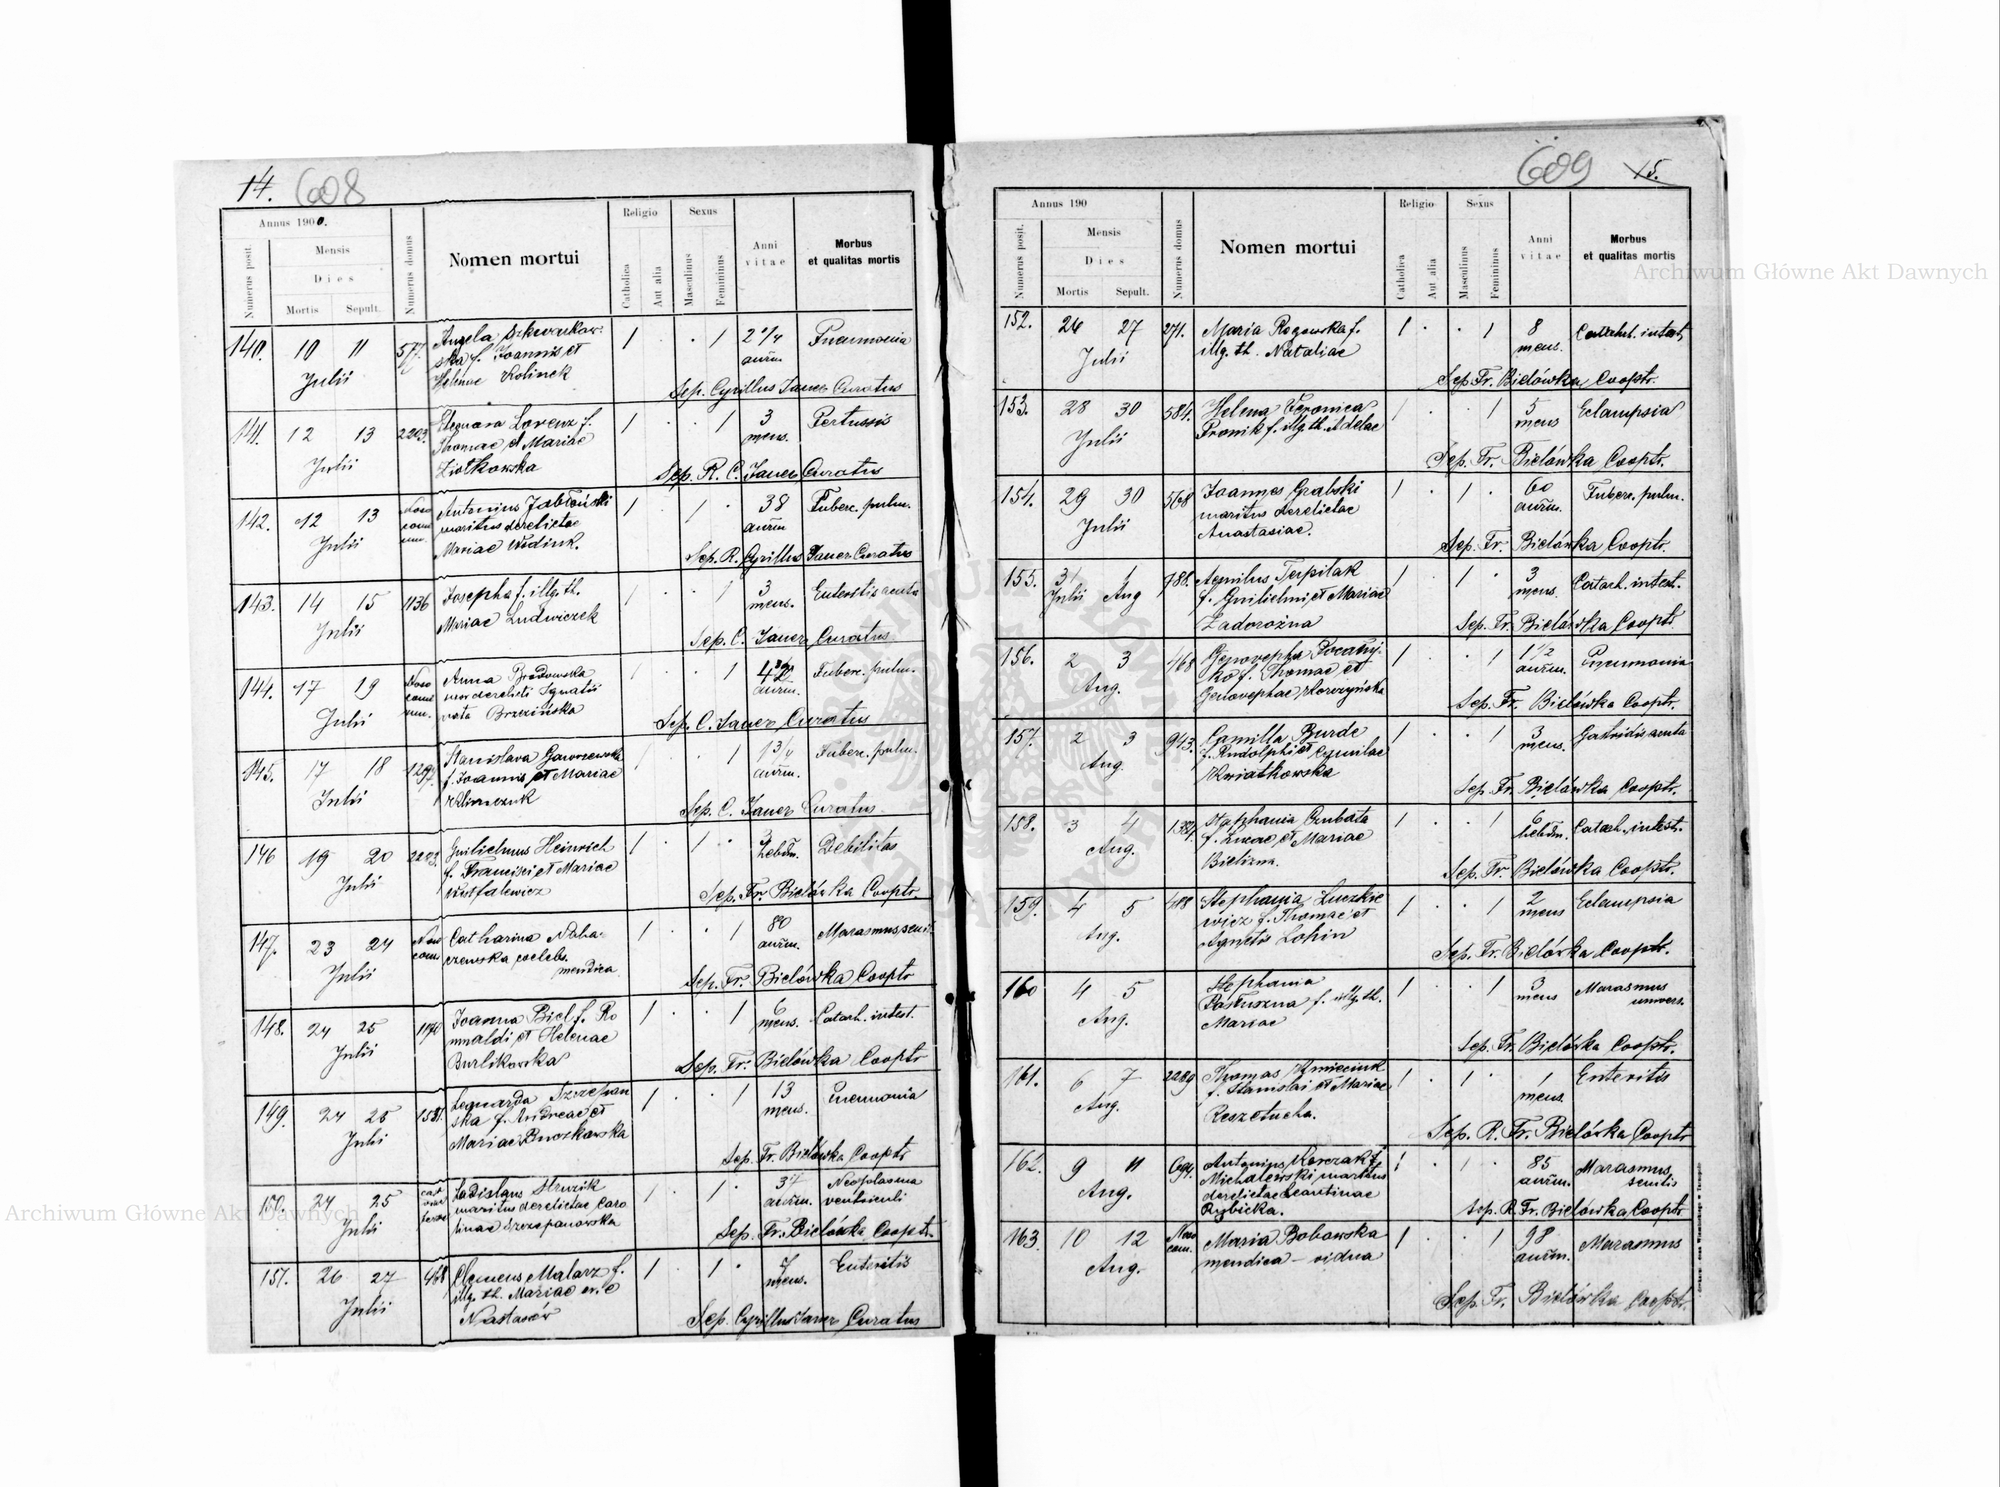 14. 608
Annus 1900.
Numerus posit.
Mensis
Dies
Mortis Sepult.
Numerus domus
Nomen mortui
Religio
Catholica
Aut alia
Sexus
Masculinus
Femininus
Anni vitae
Morbus et qualitas mortis
140. 10 11 577. Angela 1 . . 1 2 1/4 Pneumonia
ska f. Joannis et annor.
Julii Helenae Kolinek
Sep. Cyrillus Jauer Curatus
141. 12 13 2203. Eleonora Lorenz f. 1 . . 1 3 Pertussis
Thomae et Mariae mens.
Julii Ziolkowska
Sep. R. C. Jauer Curatus
142. 12 13 Noso Antonius Jabłoński 1 . 1 . 38 Tuberc. pulm.
comi maritus derelictae annor.
Julii um. Mariae Wudink.
Sep. R. Cyrillus Jauer Curatus
143. 14 15 1136 Josepha f. illg. th. 1 . . 1 3 Enteritis acuta
Julii Mariae Ludwiczek mens.
Sep. C. Jauer Curatus
144. 17 19 Noso Anna Brodowska . . 1 Tuberc. pulm.
comi uxor derelicti Ignatii annor.
Julii um. nata Brzezińska
Sep. C. Jauer Curatus
145. 17 18 Stanislava 1 . . 1 1 3/4 Tuberc. pulm.
f. Joannis et Mariae annor.
Julii Klimczuk
Sep. C. Jauer Curatus
146 19 20 2223. Guilielmus Heinrich 1 . 1 . 3 Debilitas
f. Francisci et Mariae hebdm.
Julii
Sep. Fr. Bielówka Cooptr.
147. 23 24 Noso Catharina Naha- 1 . . 1 80 Marasmus senil.
com czewska coelebs. annor.
Julii mendica
Sep. Fr. Bielówka Cooptr
148. 24 25 1170 Joanna Biel f. Ro 1 . . 1 6 Catarh. intest.
mualdi et Helenae mens.
Julii Burlikowska
Sep. Fr. Bielówka Cooptr
149. 24 25 1531. Leonarda Szczepan 1 . . 1 13 Pneumonia
ska f. Andreae et mens.
Julii Mariae Bruszkowska
Sep. Fr. Bielówka Cooptr
150. 24 25 Ladislaus Struzik 1 . 1 . 37 Neoplasma
maritus derelictae Caro annor. ventriculi
Julii linae Szczepanowska
Sep. Fr. Bielówka Cooptr.
151. 26 27 468 Clemens Malarz f. 1 . 1 . Enteritis
illg. th. Mariae mens.
Julii Nastasów
Sep. Cyrillus Jauer Curatus
609 15.
Annus 190
Numerus posit.
Mensis
Dies
Mortis Sepult.
Numerus domus
Nomen mortui
Religio
Catholica
Aut alia
Sexus
Masculinus
Femininus
Anni vitae
Morbus et qualitas mortis
152. 26 27 271. Maria Rogowska f. 1 . . 1 8 Catarh. intest.
Julii illg. th. Nataliae mens.
Sep. Fr. Bielówka Cooptr.
153. 28 30 584. Helena Veronica 1 . . 1 5 Eclampsia
Julii Pronik f. illg. th. Adelae mens
Sep. Fr. Bielówka Cooptr.
154. 29 30 568 Joannes Grabski 1 . 1 . 60 Tuberc. pulm.
Julii maritus derelictae annor.
Anastasiae.
Sep. Fr. Bielówka Cooptr.
155. 31 1 788. Aemilius Terpilak 1 . 1 . 3 Catarh. intest.
Julii Aug f. Guilielmi et Mariae mens.
Zadorożna
Sep. Fr. Bielówka Cooptr.
156. 2 3 468 Genovepha 1 . . 1 1 1/2 Pneumonia
ko f. Thomae et annor.
Aug. Genovephae Korczyńska
Sep. Fr. Bielówka Cooptr.
157. 2 3 943. Camilla Burde 1 . . 1 3 Gastridis acuta
f. Rudolphi et mens.
Aug. Kwiatkowska
Sep. Fr. Bielówka Cooptr.
158. 3 4 Stephania Grubata 1 . . 1 6 Catarh. intest.
f. Lucae et Mariae hebdm.
Aug. Bielizna.
Sep. Fr. Bielówka Cooptr.
159. 4 5 488 Stephania Luczkie 1 . . 1 2 Eclampsia
wicz f. Thomae et mens
Aug. Agnetis Lohin
Sep. Fr. Bielówka Cooptr.
160 4 5 Stephania 1 . . 1 3 Marasmus
Pastuszna f. illg. th. mens univers.
Aug. Mariae
Sep. Fr. Bielówka Cooptr.
161. 6 7 2289 Thomas Kmieciuk 1 . 1 . 1 Enteritis
f. Stanislai et Mariae mens.
Aug. Reszetucha.
Sep. R. Fr. Bielówka Cooptr
162. 9 11 694. Antonius Korczak 1 . 1 . 85 Marasmus
Michalewski maritus annor. senilis
Aug. derelictae Leontinae
Rybicka.
Sep. R. Fr. Bielówka Cooptr
163. 10 12 Noso Maria Bobowska 1 . . 1 98 Marasmus
com. mendica – vidua annor.
Aug.
Sep. Fr. Bielówka Cooptr.
Archiwum Główne Akt Dawnych
Archiwum Główne Akt Dawnych